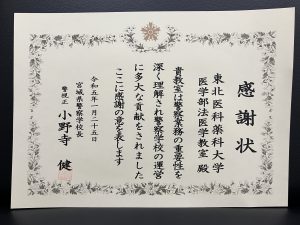 感謝状
東北医科薬科大学
医学部法医学教室 殿
貴教室は警察業務の重要性を
深く理解され警察学校の運営
に多大な貢献をされました
ここに感謝の意を表します
令和五年一月二十五日
宮城県警察学校長
警視正 小野寺 健